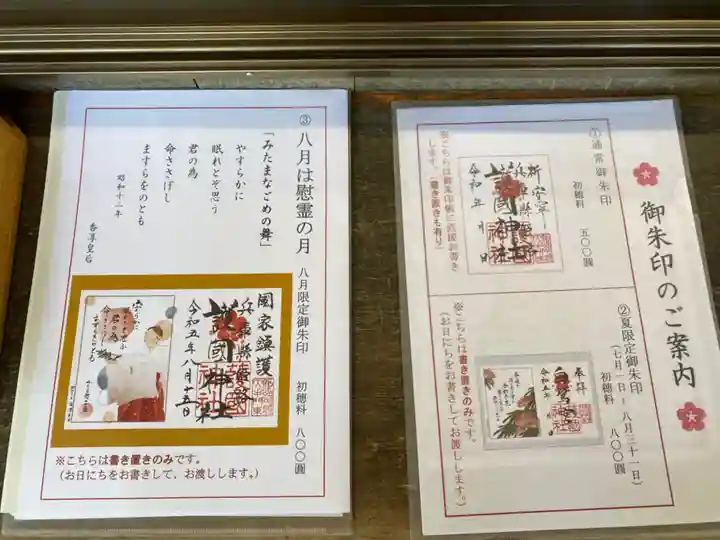 御朱印のご案内
①通常御朱印
初穂料 五〇〇圓
兵庫縣姫路
護國神社
令和 年 月 日
※こちらは御朱印帳に直接お書き
します。(書き置きも有り)
②夏限定御朱印
(七月一日~八月三十一日)
初穂料 八〇〇圓
奉拝
※こちらは書き置きのみです。
(お日にちをお書きしてお渡しします。)
③八月は慰霊の月 八月限定御朱印 初穂料 八〇〇圓
「みたまなごめの舞」
やすらかに
眠れとぞ思う
君の為
命ささげし
ますらをのとも
昭和十二年
香淳皇后
國家鎮護
兵庫縣姫路
護國神社
令和五年八月十五日
※こちらは書き置きのみです。
(お日にちをお書きして、お渡しします。)